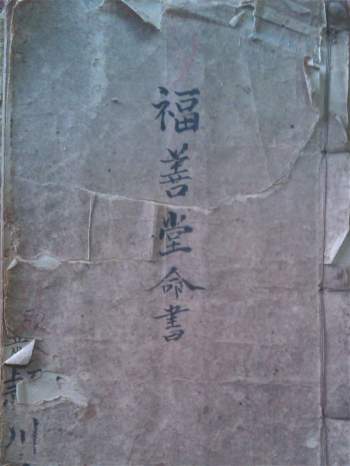 福善堂命書
川